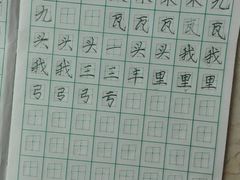 九 瓦 瓦 瓦 瓦
头 头 头 一 头 头 我 我
我 我 三 三 车 里 里 里
弓 弓 弓 亏